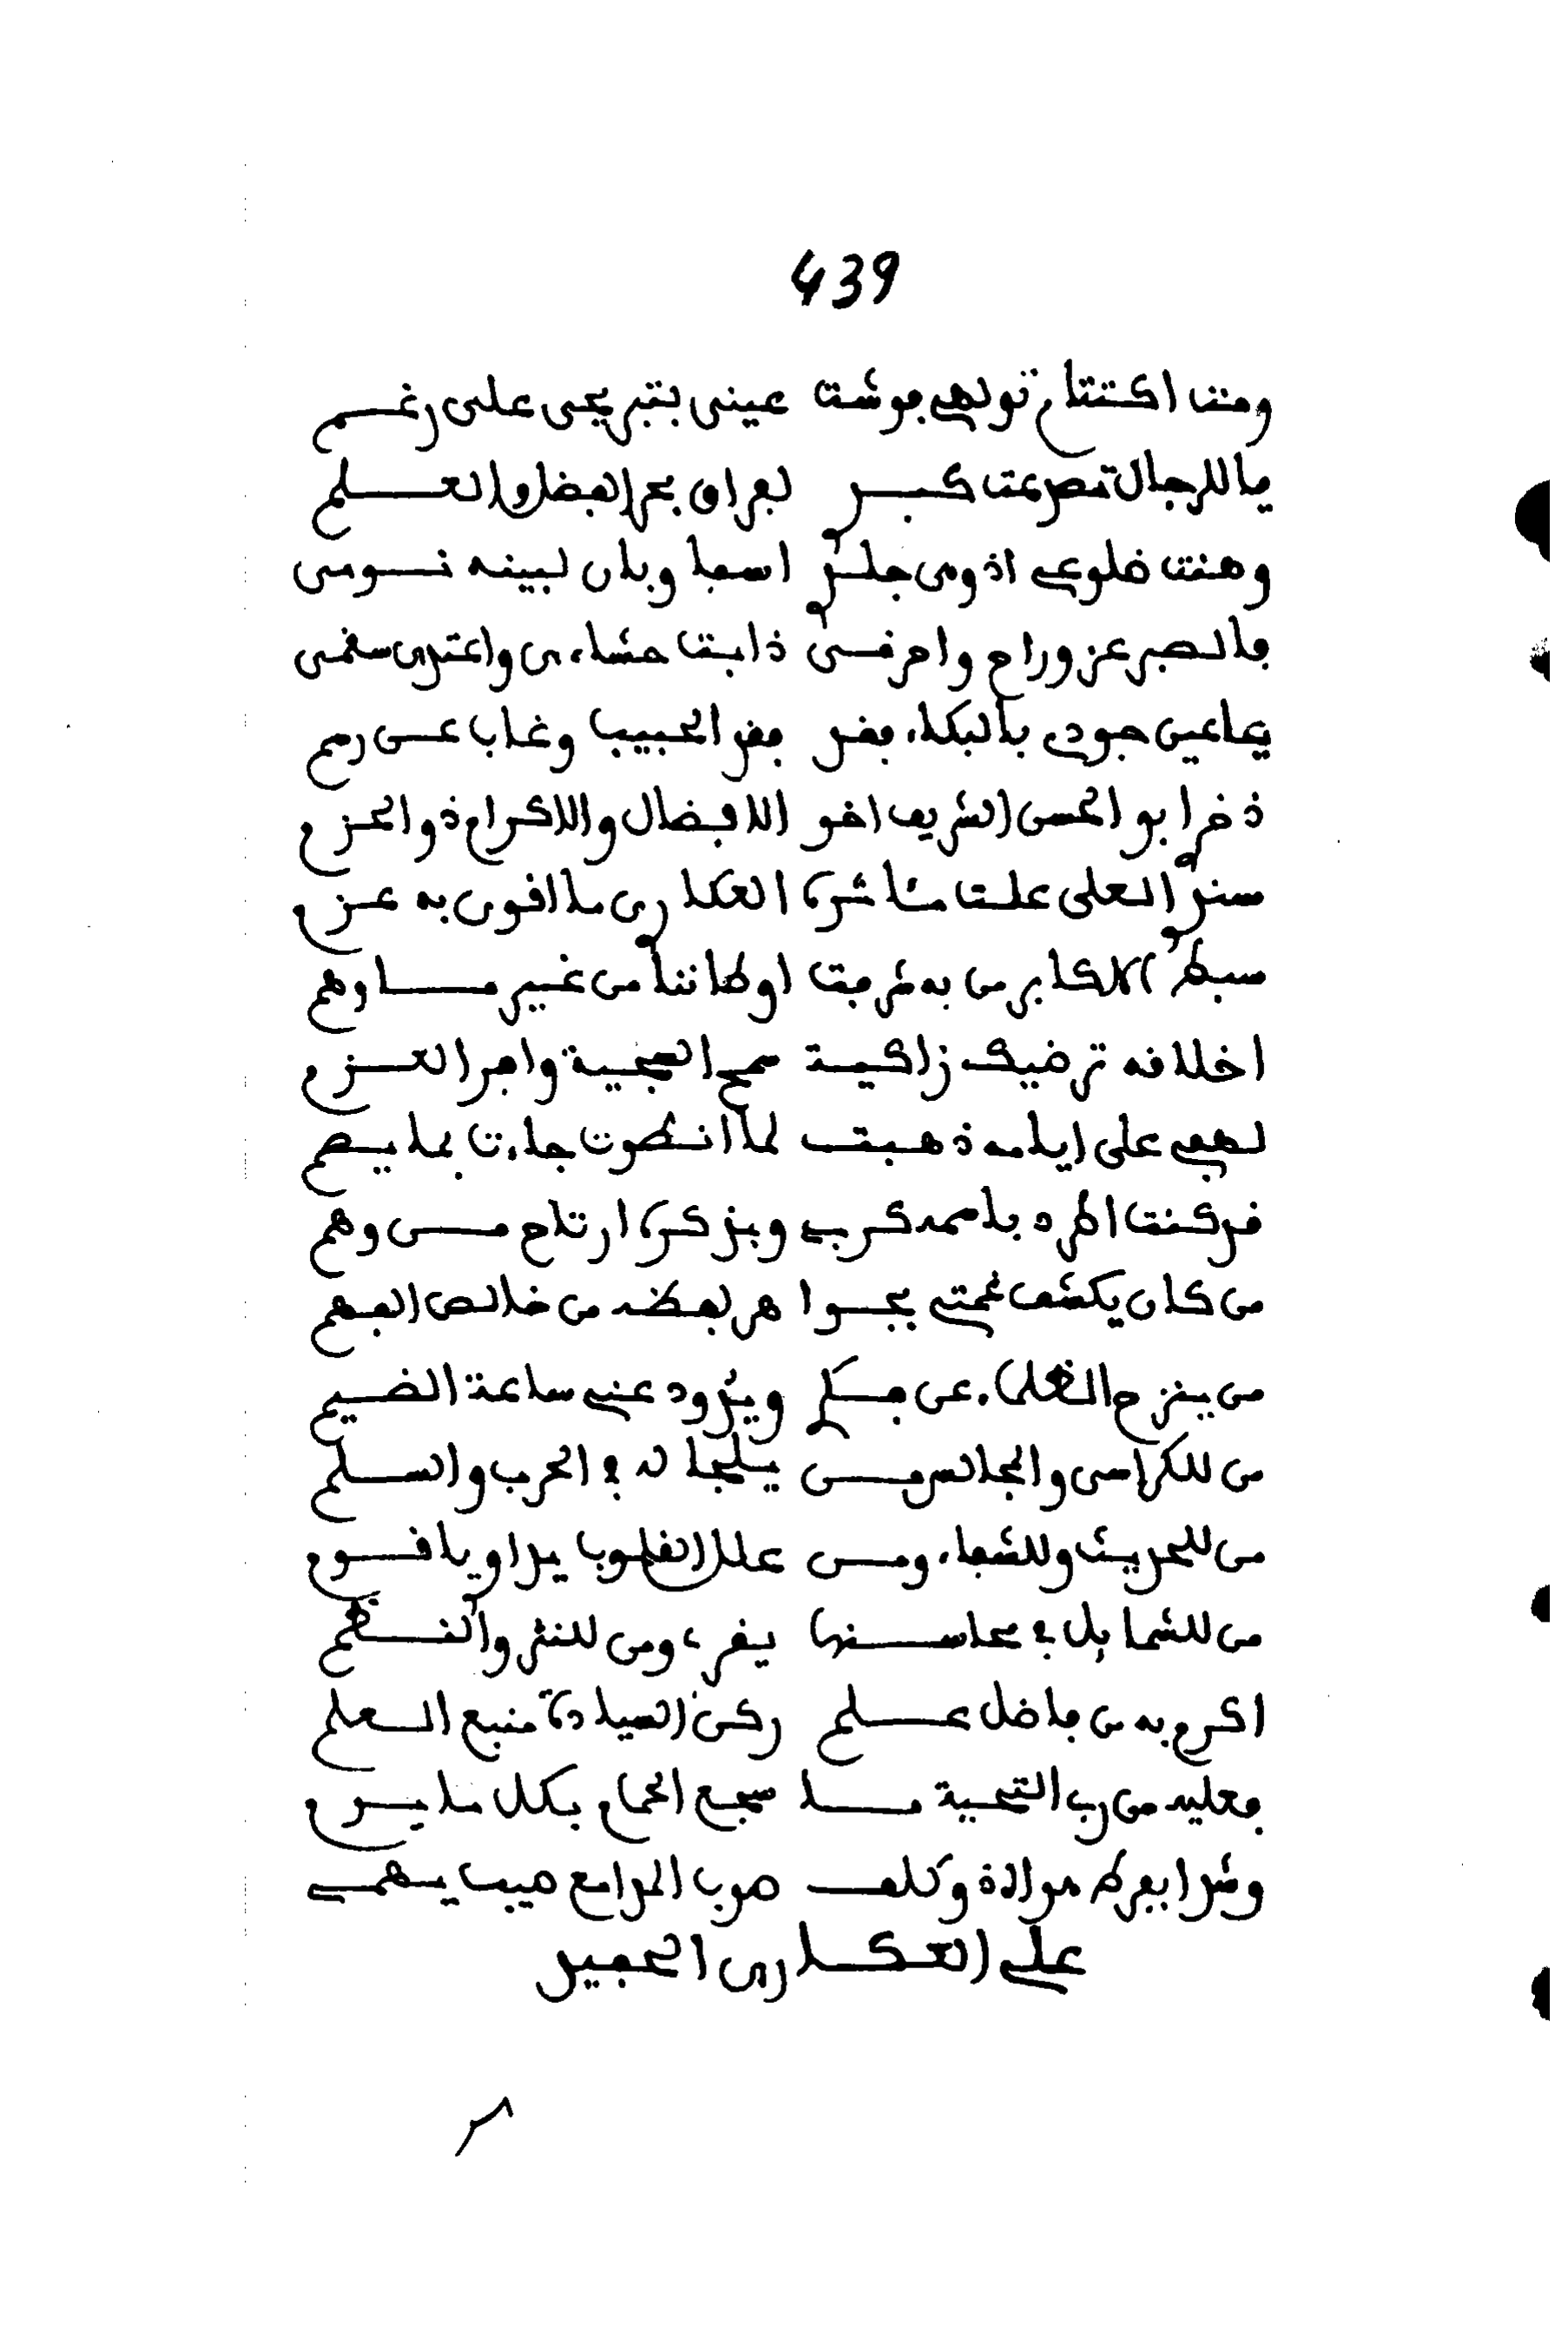 439
ومتى اكتتام تولهي فوشت عيني بتبريحي على رغم
يا للرجال تصدعت كبد لفراق بحر الفضل والعلم
وهنت ضلوعي اذ وهى جلد اسفا وبان لبينه نومي
فالصبر عز وراح واحرقي ذابت حشاءي واعترى سقمي
يا عين جودي بالبكاء فقد فقد الحبيب وغاب عن رسم
ذخرا ابو الحسن الشريف اخو الافضال والاكرام ذو الحزم
سند العلى علت مئاثره العكاري ما اقوى به عزم
سبط الاكابر من به شرفت اوطاننا من غير ما وهم
اخلاقه ترضيك زاكية سمح السجية وافر العزم
لهفي على ايامه ذهبت لما انطوت جاءت بما يصم
قد كنت اطرد باسمه كرب وبذكره ارتاح من وهم
من كان يكشف غمتي بجوا هر لفظه من خالص الفهم
من ينزح الظلماء عن فكر ويذود عني ساعة الضيم
من للكراسي والمجالس من يلجا له في الحرب والسلم
من للحديث وللشفاء ومن علل القلوب يداو يا قوم
من للشمايل في محاسنها يقرء ومن للنثر والنظم
اكرم به من فاضل علم ركن السيادة منبع العلم
فعليه من رب التحية ما سجع الحمام بكل ما يسرم
وشدا بفرط موالاة وكلف صوب المدامع صيب يهمي
على العكاري الحفيد